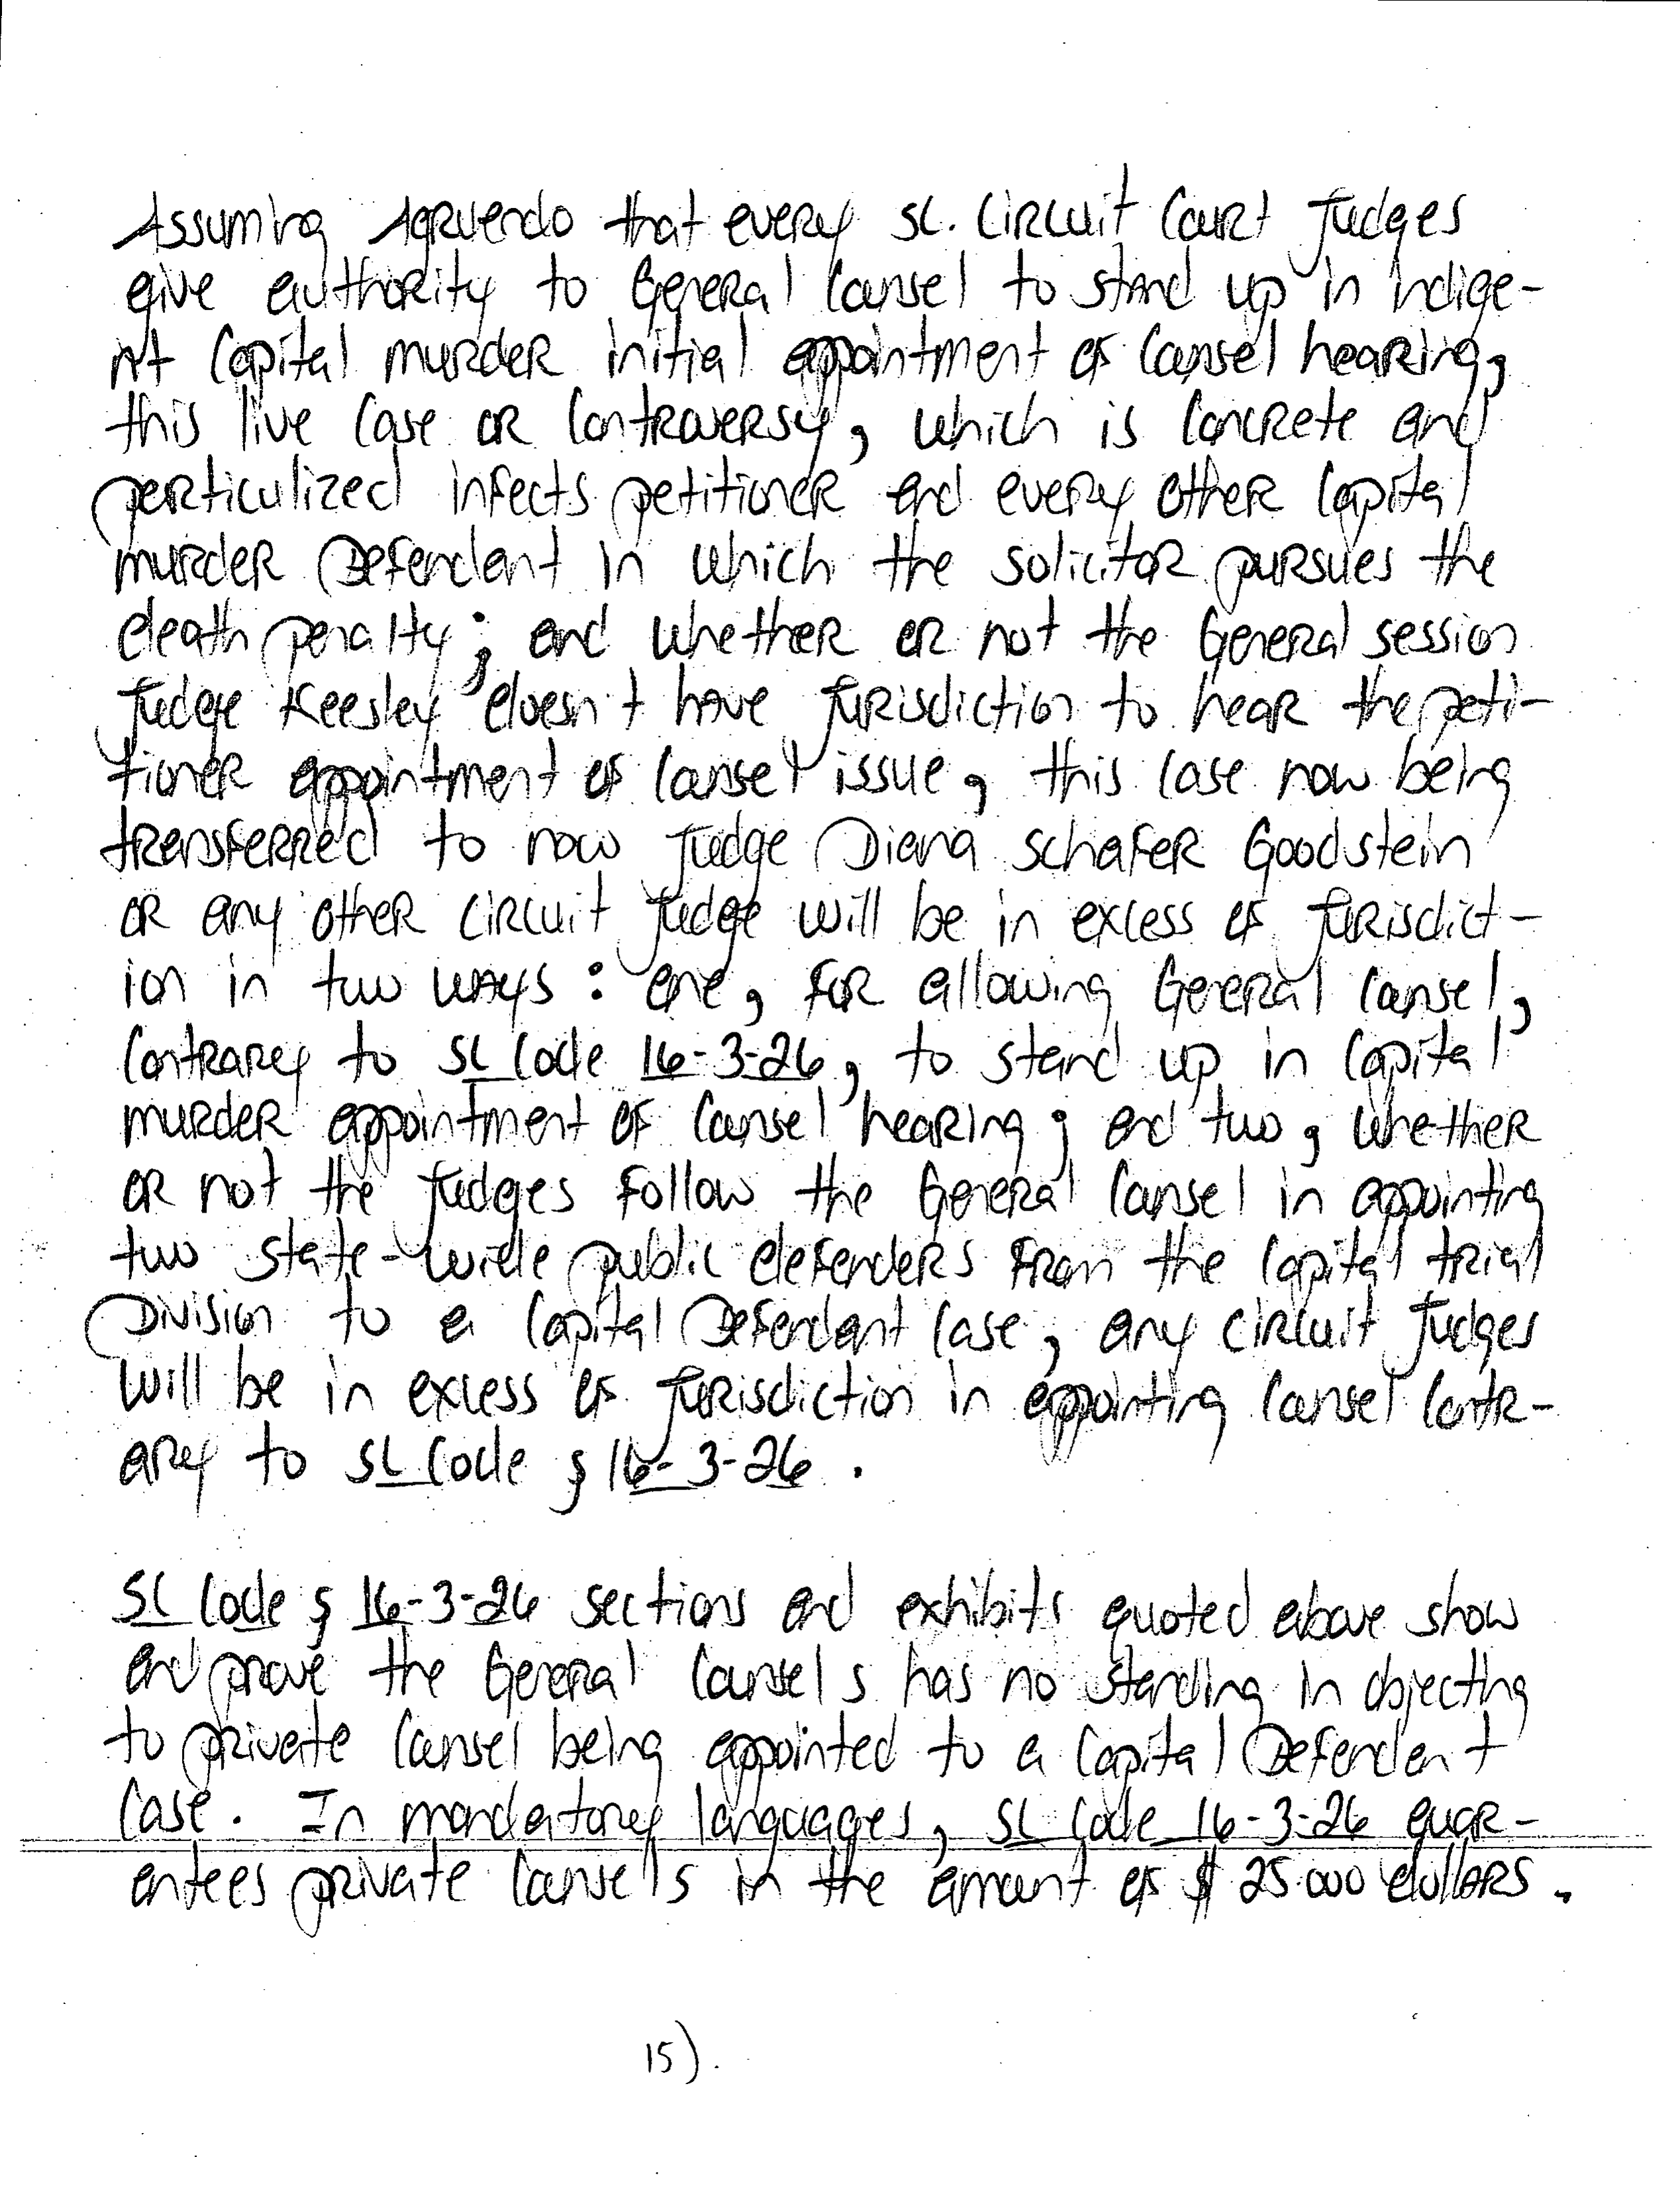 Assuming Agruendo that every SC. Circuit Court Judges
give authority to General Counsel to stand up in indige-
nt Capital murder initial appointment of Counsel hearing,
this live Case or Controversy, which is Concrete and
perticulized infects petitioner and every other Capital
murder Defendant in which the solicitor pursues the
death penalty; and whether or not the General session
Judge Keesley doesn't have Jurisdiction to hear the peti-
tioner appointment of Counsel issue, this Case now being
transferred to now Judge Diana Schafer Goodstein
or any other circuit Judge will be in excess of Jurisdict-
ion in two ways: one, for allowing General Counsel,
Contrary to SC Code 16-3-26, to stand up in Capital
murder appointment of Counsel hearing; and two, whether
or not the Judges follow the General Counsel in appointing
two state-wide public defenders from the Capital trial
Division to a Capital Defendant Case, any circuit Judges
will be in excess of Jurisdiction in appointing Counsel Contr-
ary to SC Code § 16-3-26.
SC Code § 16-3-26 sections and exhibits quoted above show
and prove the General Counsels has no standing in objecting
to private Counsel being appointed to a Capital Defendent
Case. In mandatory languages, SC Code 16-3-26 guar-
entees private Counsels in the amount of $ 25.000 dollars.
15).